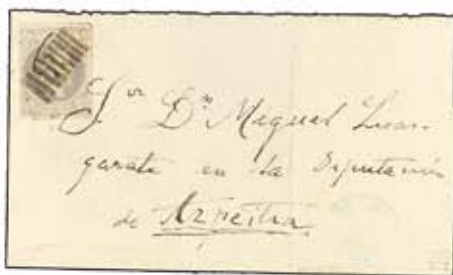 Sor Dn Miguel Luzan-
garate en la Diputación
de Azpeitia